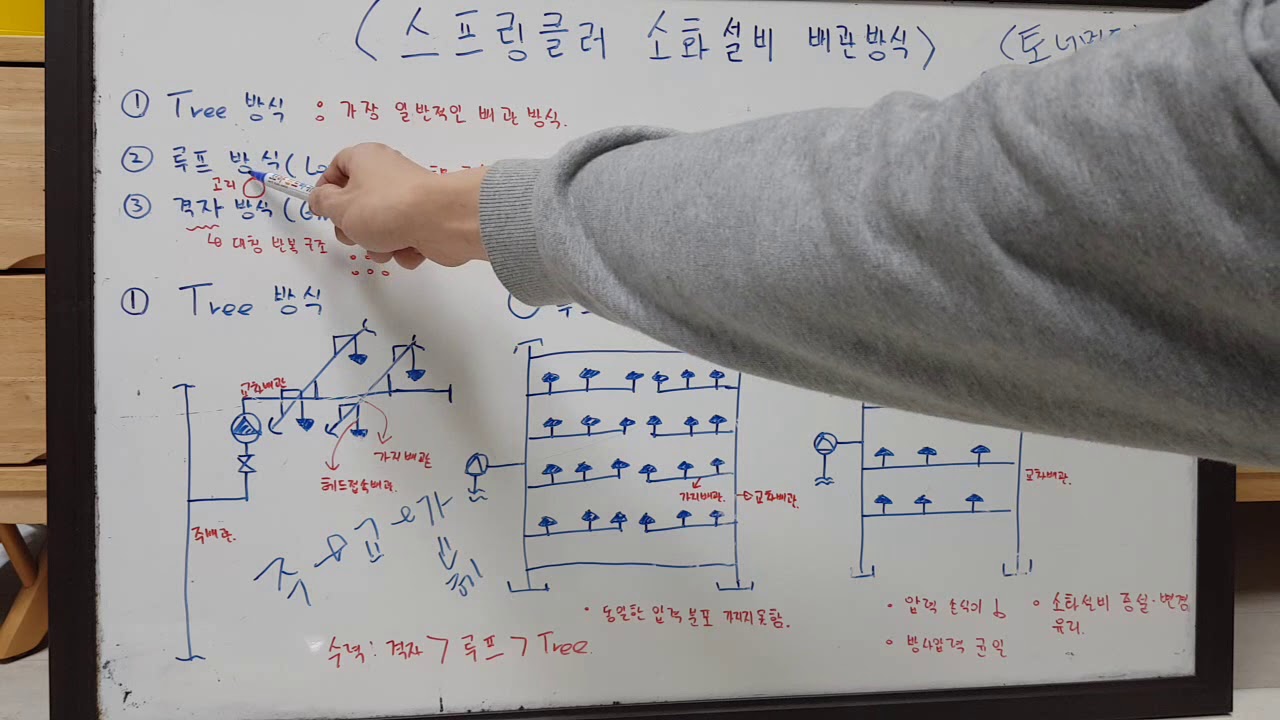 (스프링클러 소화설비 배관방식) (토너
① Tree 방식 : 가장 일반적인 배관 방식.
② 루프 방식 (Lo
고리
③ 격자 방식 (G
↳ 대칭 반복 구조
① Tree 방식
교화배관
가지배관
헤드접속배관.
주배관.
주 교 가
헤
가지배관.
교화배관.
교화배관.
• 동일한 압력 분포 가지지 못함.
• 압력 손식이 ↓
• 방사압력 균일
• 소화설비 증설·변경 유리.
수력: 격자 > 루프 > Tree.